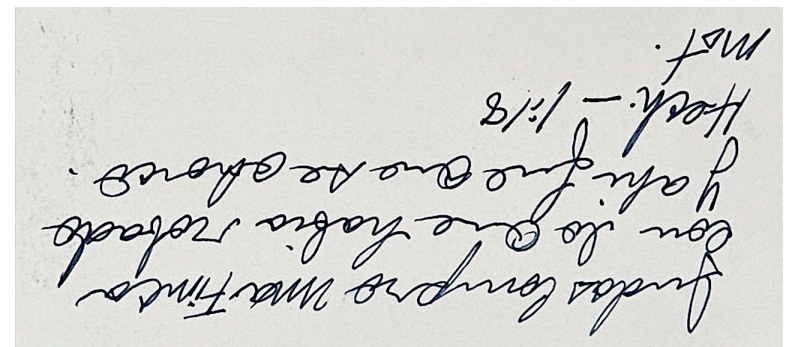 Judas Compro una Finca
con lo que habia robado
y ahi fue que se ahorco.
Hech. - 1:18
mat.